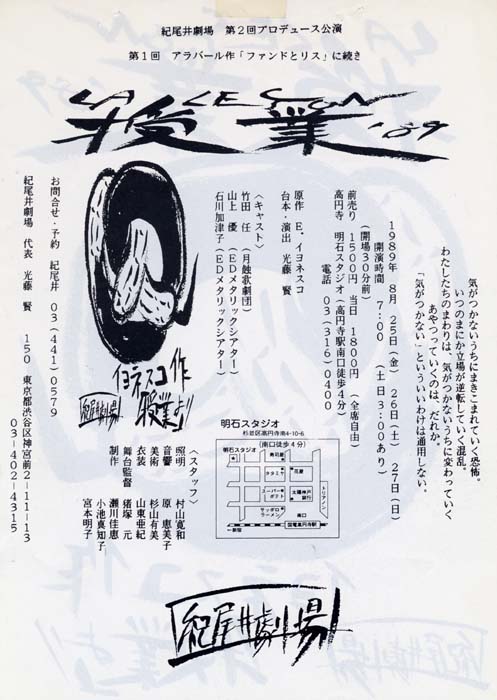 紀尾井劇場　第２回プロデュース公演
第１回　アラバール作「ファンドとリス」に続き
LA LECON
授業 '89
気がつかないうちにまきこまれていく恐怖。
いつのまにか立場が逆転していく混乱。
わたしたちのまわりは、気がつかないうちに変わっていく
あやつっていくのは、だれか。
「気がつかない」といういいわけは通用しない。
1989年 8月 25日(金) 26日(土) 27日(日)
開演時間 7:00 (土日3:00あり)
(開場30分前)
前売り 1500円 当日 1800円 (全席自由)
高円寺 明石スタジオ(高円寺駅南口徒歩4分)
電話 03(316)0400
原作 E・イヨネスコ
台本・演出 光藤 賢
〈キャスト〉
竹田 任 (月蝕歌劇団)
山上 優 (EDメタリックシアター)
石川加津子(EDメタリックシアター)
イヨネスコ作
授業より
紀尾井劇場
お問合せ・予約 紀尾井 03(441)0579
紀尾井劇場 代表 光藤 賢 150 東京都渋谷区神宮前2-11-13
03-402-4315
〈スタッフ〉
照明 村山寛和
音響 原 恵美子
美術 杉山有美
衣装 山東亜紀
舞台監督 猪塚 元
制作 瀬川佳恵
小池真知子
宮本明子
明石スタジオ
杉並区高円寺南4-10-6
(南口徒歩4分)
明石スタジオ
寿司屋
タタミ
花屋
スーパーポテト
太陽神戸銀行
トリアノン
サッポロラーメン
南口
←新宿
国電高円寺駅
紀尾井劇場